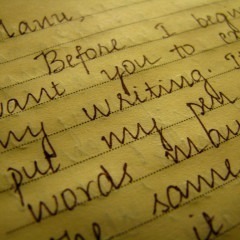 Manu,
Before I begin
want you to
my writing.
put my pen
words in
the same
it